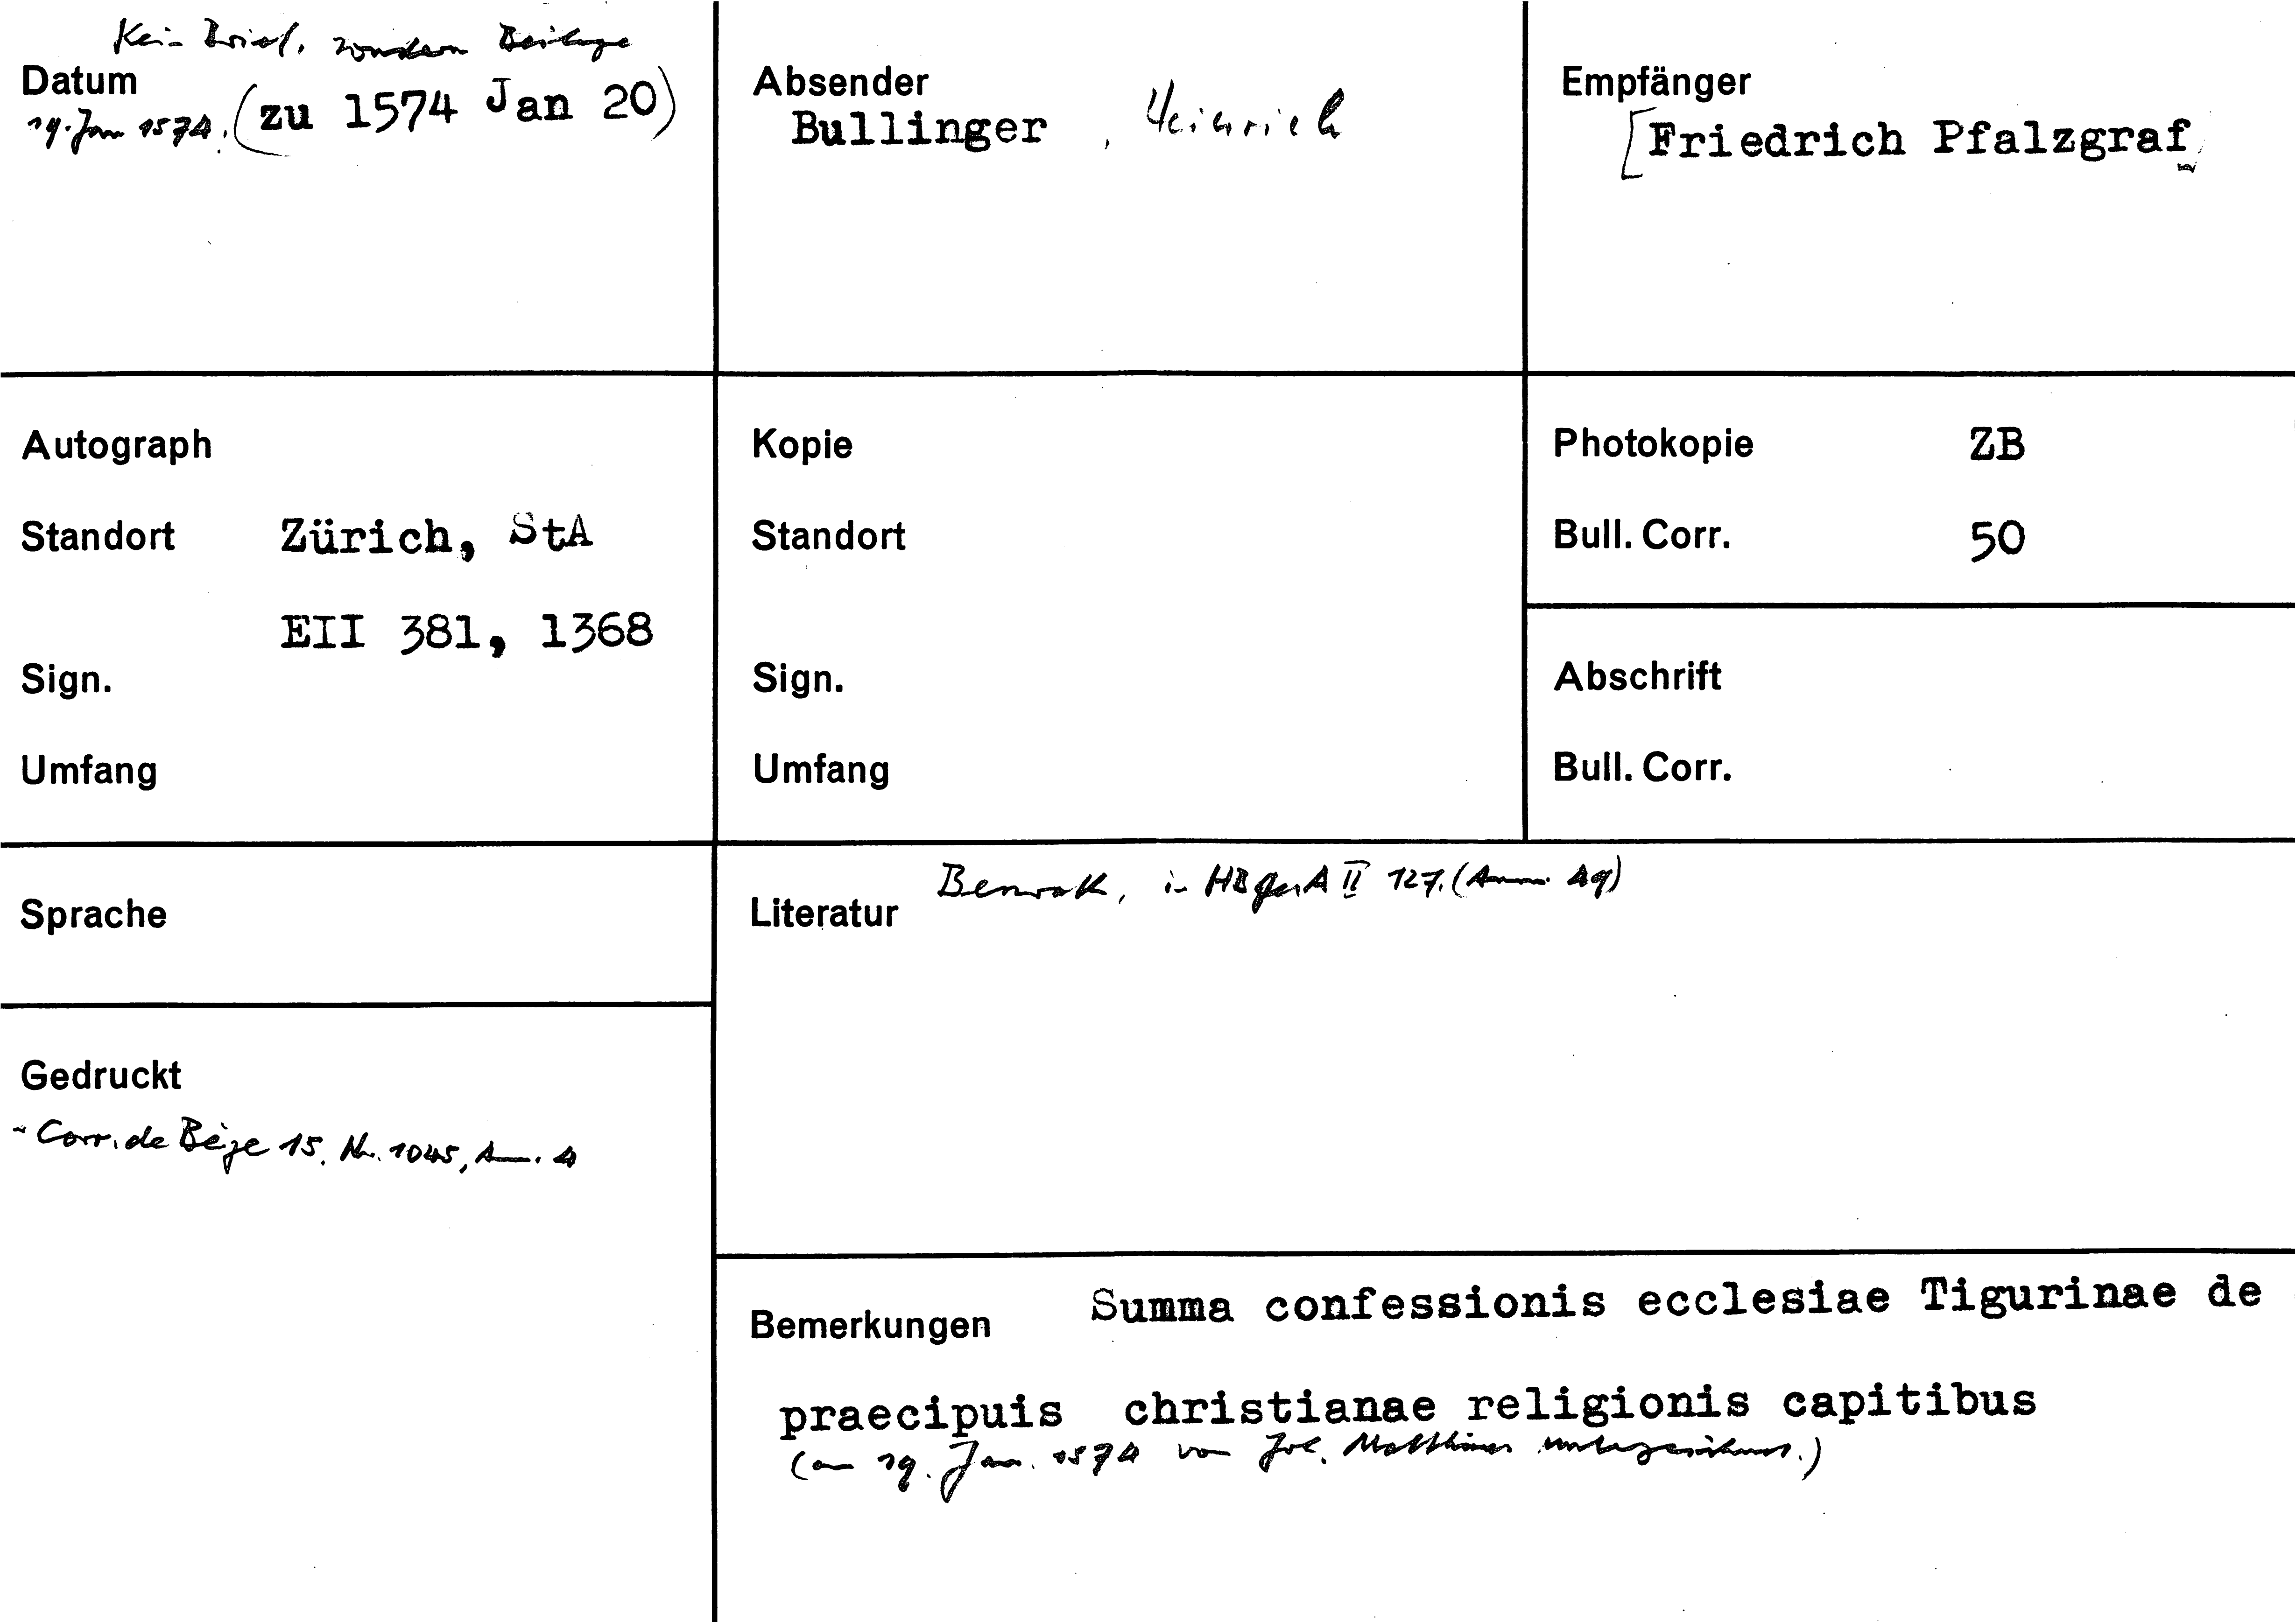 Kein Brief, sondern Beilage
Datum
19. Jan 1574. (zu 1574 Jan 20)
Absender
Bullinger, Heinrich
Empfänger
[Friedrich Pfalzgraf]
Autograph
Standort Zürich, StA
EII 381, 1368
Sign.
Umfang
Kopie
Standort
Sign.
Umfang
Photokopie ZB
Bull. Corr. 50
Abschrift
Bull. Corr.
Sprache
Benrath, in HBGesA II 127. (Anm. 49)
Literatur
Gedruckt
- Corr. de Bèze 15, Nr. 1045, Anm. 4
Bemerkungen Summa confessionis ecclesiae Tigurinae de
praecipuis christianae religionis capitibus
(am 19. Jan. 1574 von Joh. unterzeichnet.)